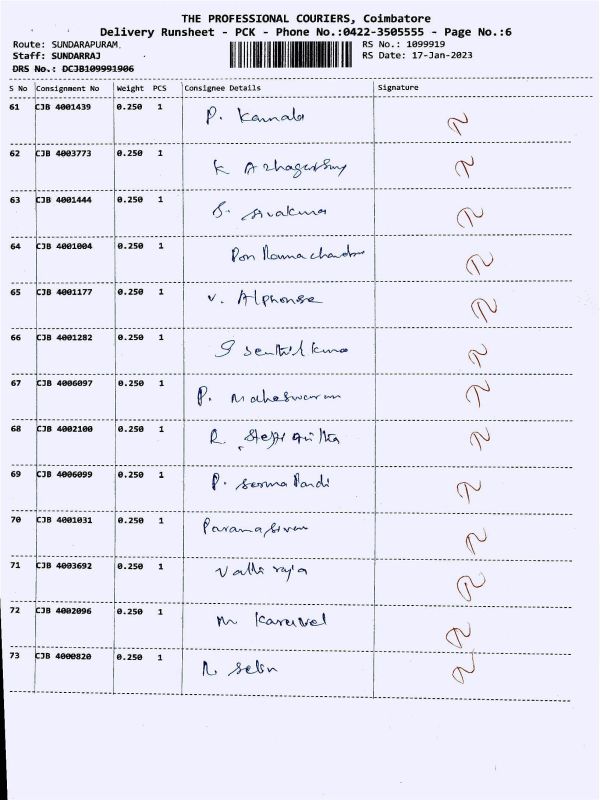 THE PROFESSIONAL COURIERS, Coimbatore
Delivery Runsheet - PCK - Phone No.:0422-3505555 - Page No.:6
Route: SUNDARAPURAM. RS No.: 1099919
Staff: SUNDARRAJ RS Date: 17-Jan-2023
DRS No.: DCJB109991906
S No Consignment No Weight PCS Consignee Details Signature
61 CJB 4001439 0.250 1 P. Kamala
62 CJB 4003773 0.250 1 K
63 CJB 4001444 0.250 1 S. Sivakumar
64 CJB 4001004 0.250 1 Pon Ramachandran
65 CJB 4001177 0.250 1 V. Alphonse
66 CJB 4001282 0.250 1 Senthil Kumar
67 CJB 4006097 0.250 1 P. Maheswaran
68 CJB 4002100 0.250 1 R.
69 CJB 4006099 0.250 1 P. Pandi
70 CJB 4001031 0.250 1 Paramasivam
71 CJB 4003692 0.250 1 Valli raja
72 CJB 4002096 0.250 1 M Karuvel
73 CJB 4000820 0.250 1